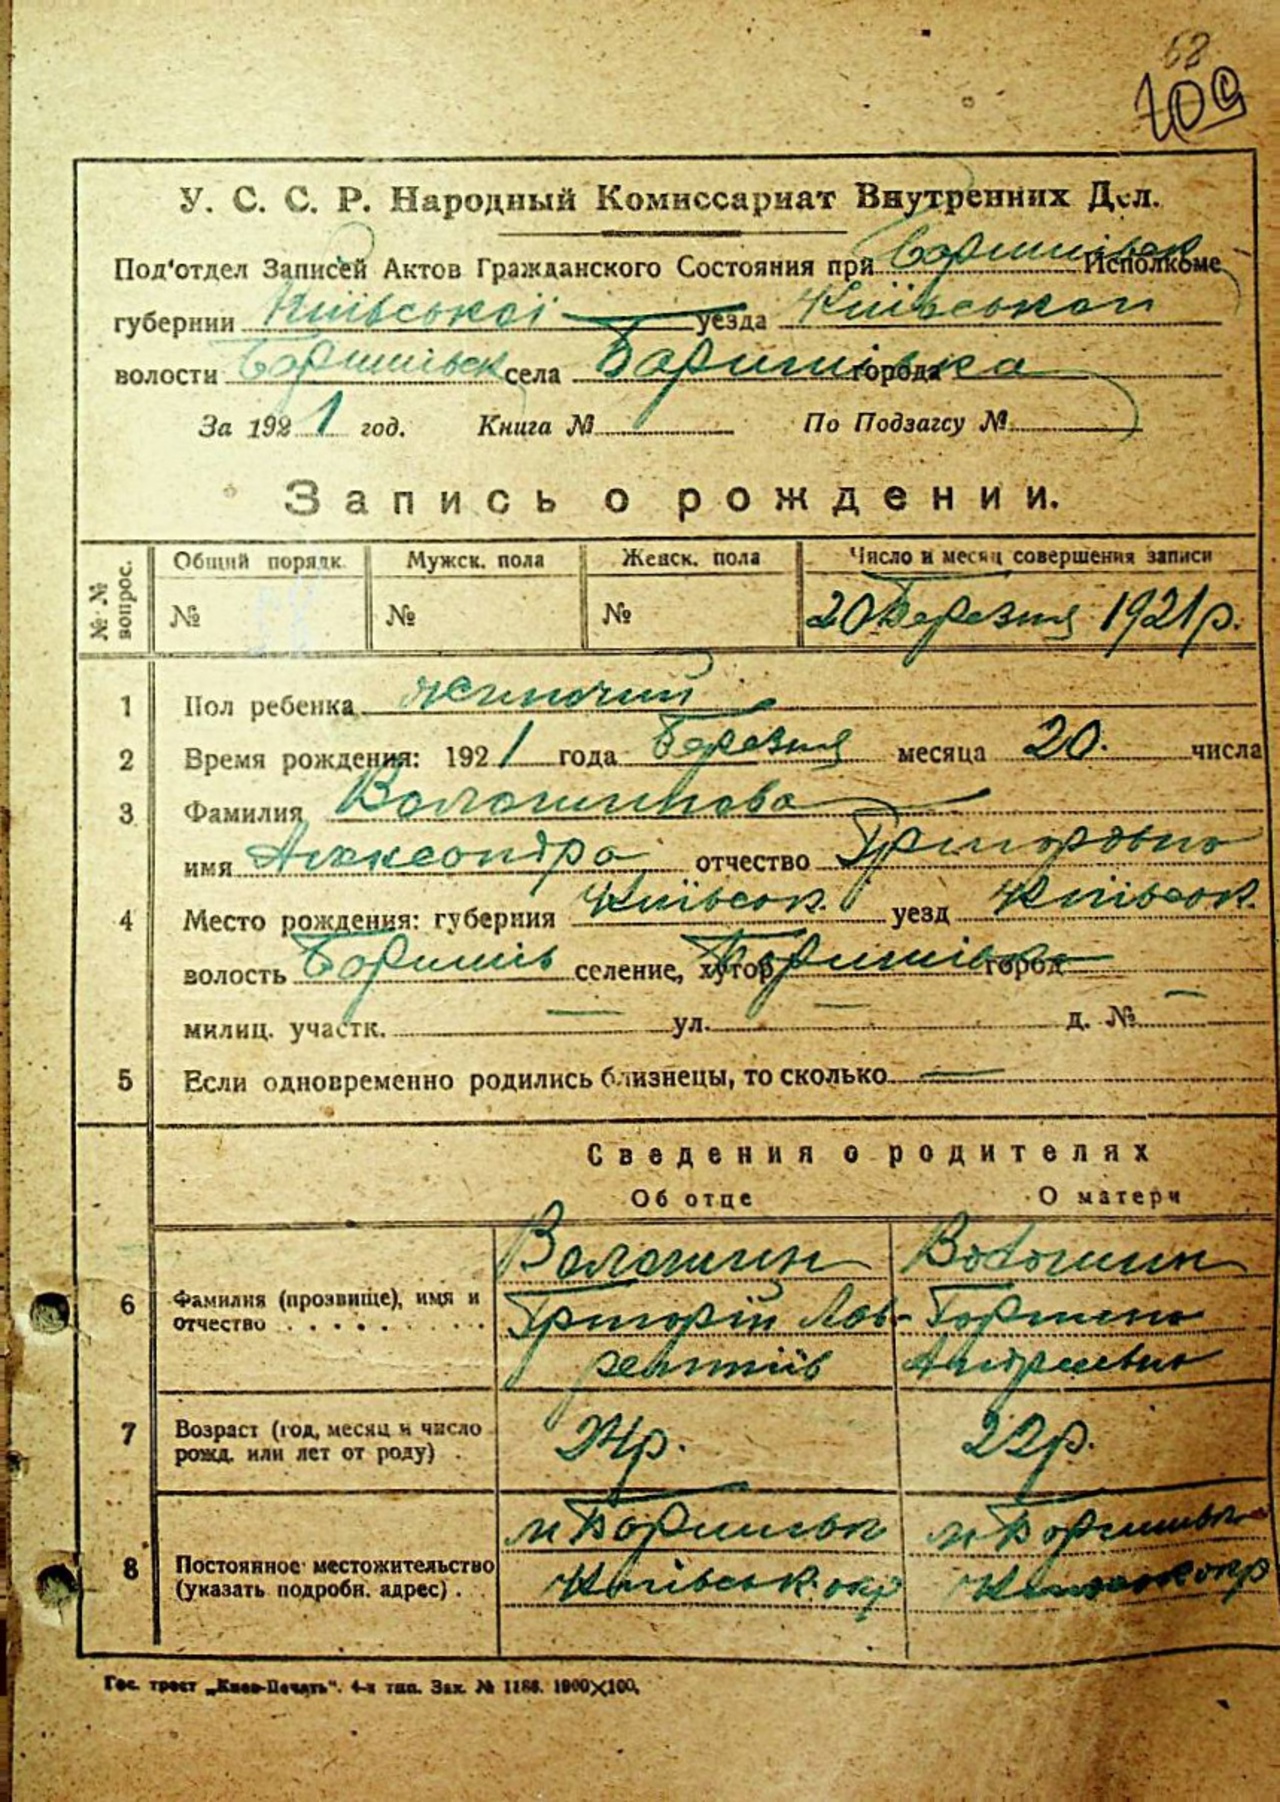 62
У. С. С. Р. Народный Комиссариат Внутренних Дел.
Под'отдел Записей Актов Гражданского Состояния при Исполкоме
губернии Київської уезда Київськой
волости села города
За 1921 год. Книга № По Подзагсу №
Запись о рождении.
№ № вопрос. Общий порядк. Мужск. пола Женск. пола Число и месяц совершения записи
№ № № 20 Березня 1921 р.
1 Пол ребенка жиночий
2 Время рождения: 1921 года Березня месяца 20. числа
3 Фамилия Волошинова
имя Александра отчество Григоровна
4 Место рождения: губерния Київськ. уезд Київськ.
волость селение, хутор город
милиц. участк. — ул. — д. № —
5 Если одновременно родились близнецы, то сколько —
Сведения о родителях
Об отце О матери
6 Фамилия (прозвище), имя и отчество . . . . . . . . Волошин Волошин
Григорій Лав-
рентіїв Андреевна
7 Возраст (год, месяц и число рожд. или лет от роду) . 24р. 22р.
8 Постоянное местожительство (указать подробн. адрес) .
Київськ. окр
Гос. трест „Киев-Печать". 4-я тип. Зак. № 1186. 1000×100.